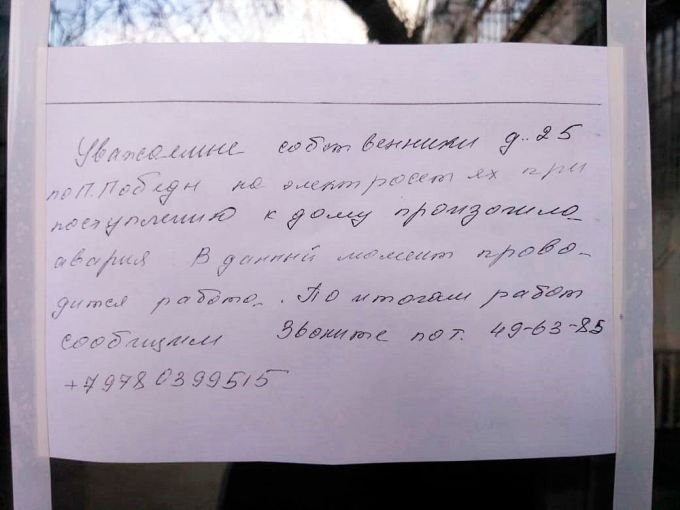 Уважаемые собственники д. 25
по П. Победы на электросетях при
поступлению к дому произошла
авария В данный момент прово-
дится работа. По итогам работ
сообщим Звоните по т. 49-63-85
+79780399515